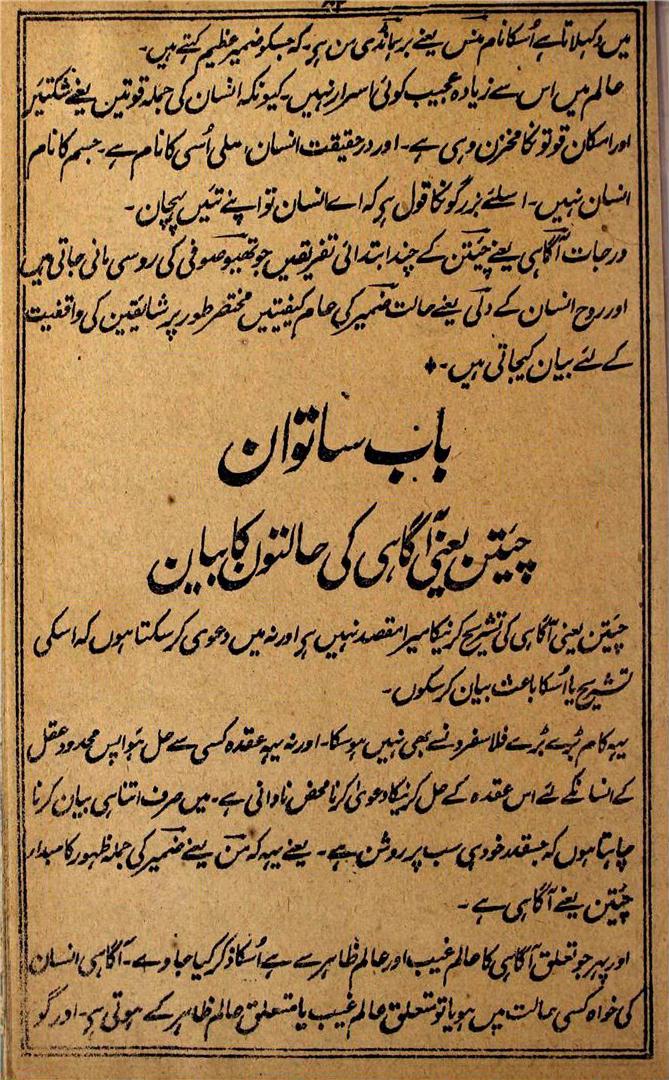 میں دکہلاتا ہے اُسکا نام منس یعنے برہمانڈی من ہی۔ کہ جسکو ضمیر عظیم کہتے ہیں۔
عالم میں اس سے زیادہ عجیب کوئی اسرار نہیں۔ کیونکہ انسان کی جملہ قوتین یعنے شکتئیں
اور امکان قوتونکا مخزن وہی ہے۔ اور درحقیقت انسان اصلی اُسی کا نام ہے۔ جسم کا نام
انسان نہیں۔ اسلئے بزرگونکا قول ہی کہ اے انسان تو اپنے تئیں پہچان۔
درجات آگاہی یعنے چیتن کے چند ابتدائی تفریقیں جو تھیوصوفی کی روسی مانی جاتی ہیں
اور روح انسان کے دلی یعنے حالت ضمیر کی عام کیفیتیں مختصر طور پر شایقین کی واقفیت
کے لئے بیان کیجاتی ہیں۔
باب ساتوان
چیتن یعنی آگاہی کی حالتون کا بیان
چیتن یعنی آگاہی کی تشریح کرنیکا میرا مقصد نہیں ہی اور نہ میں دعوی کر سکتا ہوں کہ اسکی
تشریح یا اُسکا باعث بیان کر سکوں۔
یہہ کام بڑے بڑے فلاسفرونسے بھی نہیں ہو سکا۔ اور نہ یہہ عقدہ کسی سے حل ہوا پس محدود عقل
کے انسانکے لئے اس عقدہ کے حل کرنیکا دعویٰ کرنا محض نادانی ہے۔ میں صرف اتنا ہی بیان کرنا
چاہتا ہوں کہ جسقدر خود ہی سب پر روشن ہے۔ یعنے یہہ کہ من یعنے ضمیر کی جملہ ظہور کا مبداء
چیتن یعنے آگاہی ہے۔
اور پہر جو تعلق آگاہی کا عالم غیب اور عالم ظاہر سے ہے اُسکا ذکر کیا جاوے۔ آگاہی انسان
کی خواہ کسی حالت میں ہو یا تو متعلق عالم غیب یا متعلق عالم ظاہر کے ہوتی ہی۔ اور گو